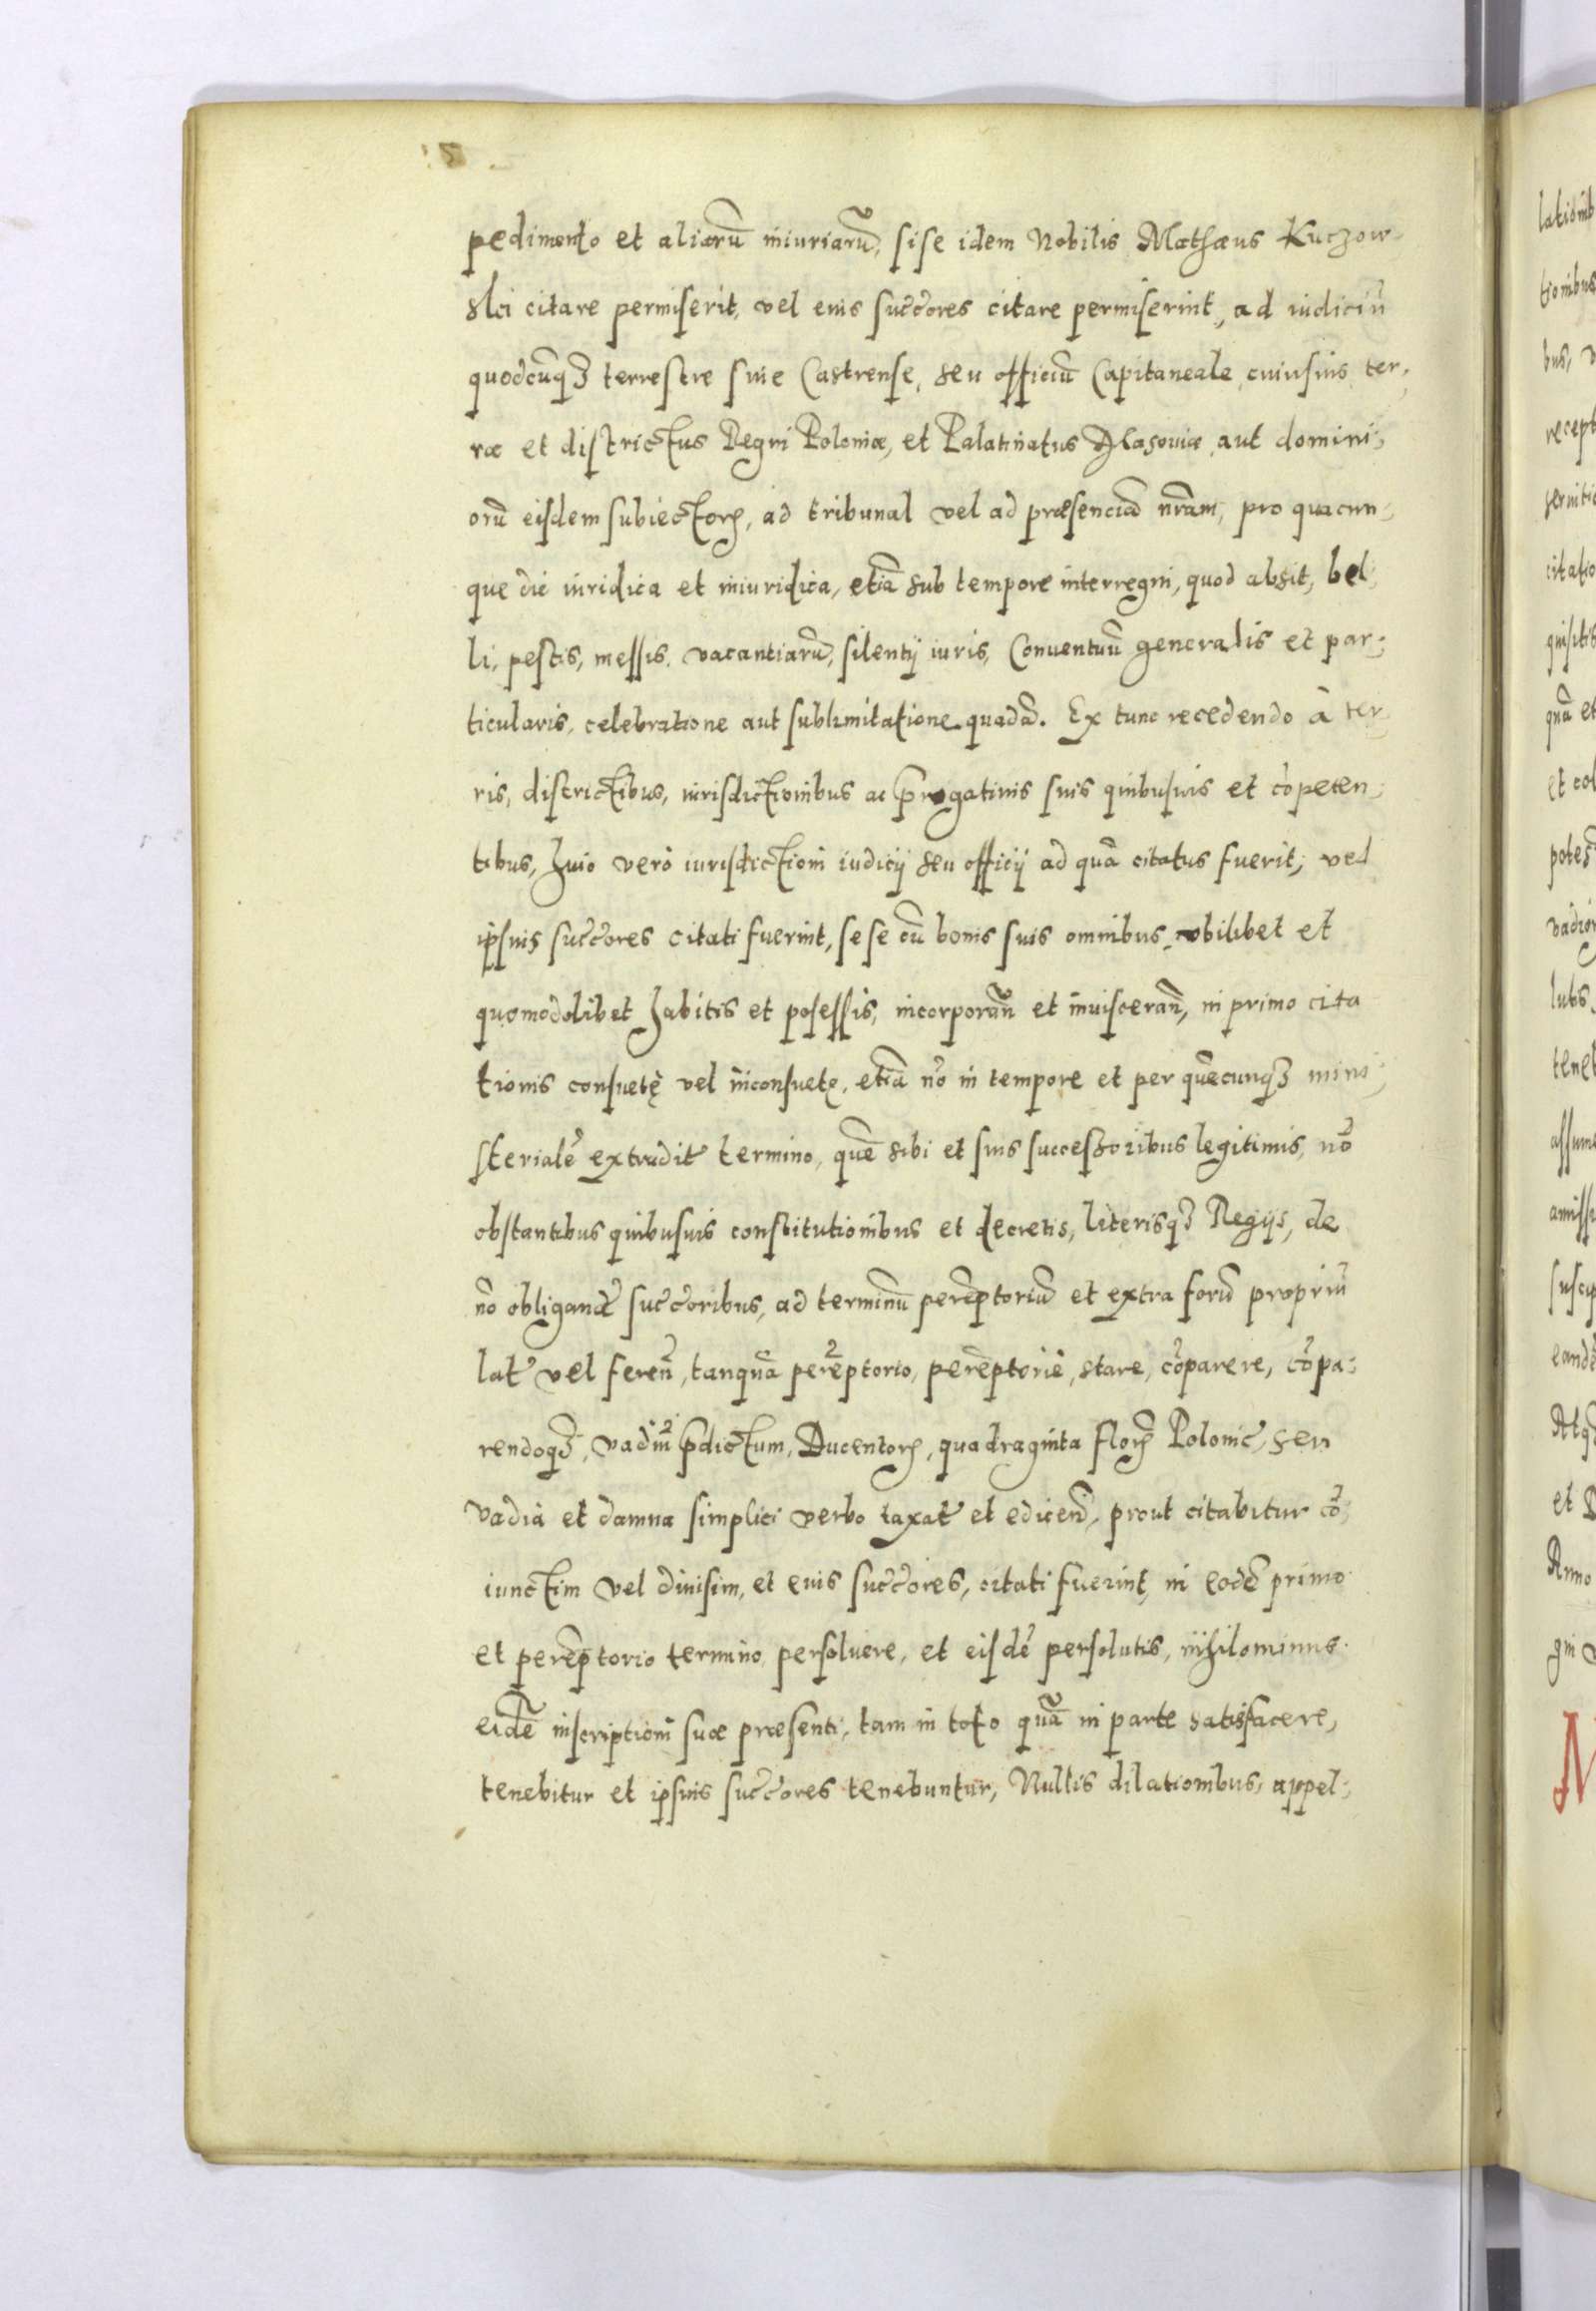 pedimento et aliarū iniuriarū, si se idem Nobilis Mathæus Kuczow-
ski citare permiserit, vel eius succ̃ores citare permiserint, ad iudiciū
quodcūq₃ terrestre siue Castrense, seu officiū Capitaneale, cuiusuis ter-
ræ et districtus Regni Poloniæ, et Palatinatus Masoviæ, aut domini-
orū eisdem subiectorꝝ, ad tribunal vel ad præsenciā nr̃am, pro quacun-
que die iuridica et iniuridica, etiā sub tempore interregni, quod absit, bel-
li, pestis, messis, vacantiarū, silentij iuris, Conuentuū generalis et par-
ticularis, celebratione aut sublimitatione quadā. Ex tunc recedendo à ter-
ris, districtibus, iurisdictionibus ac p̄rogatiuis suis quibusuis et cōpeten-
tibus, huic verò iurisdictioni iudicij seu officij ad quā citatus fuerit, vel
ipsius succ̃ores citati fuerint, se se cū bonis suis omnibus, vbilibet et
quomodolibet habitis et posessis, incorporan̄ et inuisceran̄, in primo cita
tionis consuetę vel inconsuetę, etiā nō in tempore et per quēcunq₃ mini-
sterialē extradit̃ termino, quē sibi et suis successoribus legitimis, nō
obstantibus quibusuis constitutionibus et decretis, literisq₃ Regijs, de
nō obligand̃ succ̃oribus, ad terminū perēptoriū et extra forū propriū
lat̃ vel feren̄, tanquā perēptorio, perēptoriè, stare, cōparere, cōpa-
rendoq₃, vadiū p̄dictum, Ducentorꝝ, quadraginta florꝝ Polonic̃ seu
vadia et damna simplici verbo taxat̃ et edicend̃, prout citabitur cō-
iunctim vel diuisim, et eius succ̃ores, citati fuerint, in eodē primo
et perēptorio termino persoluere, et eisdē persolutis, nihilominus
eidē inscriptioni suæ præsenti, tam in toto quā in parte satisfacere,
tenebitur et ipsius succ̃ores tenebuntur, Nullis dilationibus, appel-